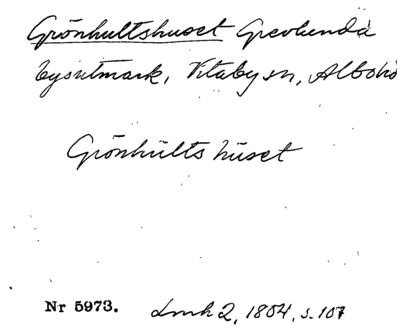 Grönhultshuset Grevlunda
bysutmark, Vitaby sn, Albo hd
Grönhults huset
Nr 5973. Lmh 2, 1804, s. 107